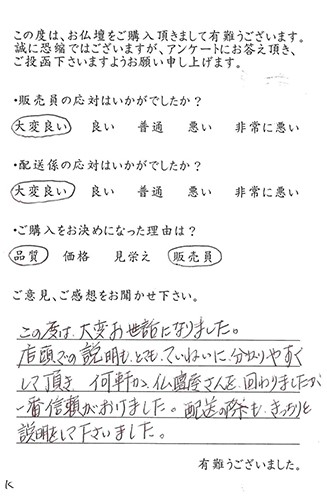 この度は、お仏壇をご購入頂きまして有難うございます。
誠に恐縮ではございますが、アンケートにお答え頂き、
ご投函下さいますようお願い申し上げます。
・販売員の応対はいかがでしたか？
大変良い 良い 普通 悪い 非常に悪い
・配送係の応対はいかがでしたか？
大変良い 良い 普通 悪い 非常に悪い
・ご購入をお決めになった理由は？
品質 価格 見栄え 販売員
ご意見、ご感想をお聞かせ下さい。
この度は、大変お世話になりました。
店頭での説明も、とても、ていねいに、分かりやすく
して頂き 何軒か、仏壇屋さんを、回わりましたが
一番信頼がおけました。配送の際も、きっちりと
説明をして下さいました。
有難うございました。
K